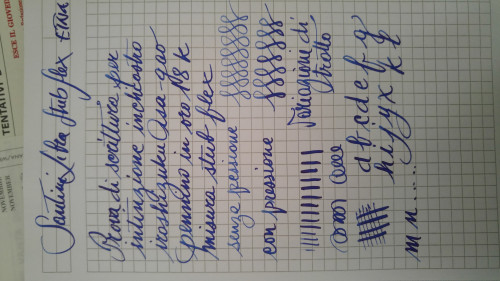 ESCE IL GIOVEDÌ
TENTATIVI
NOVEMBRE
NOVEMBER
Santini Libra stub flex
Prova di scrittura per
intinzione inchiostro
iroshizuku Asa-gao
pennino in oro 18 k
misura stub flex
senza pressione
con pressione
Variazione di
tratto
a b c d e f g
h i j y x k z
m n .....